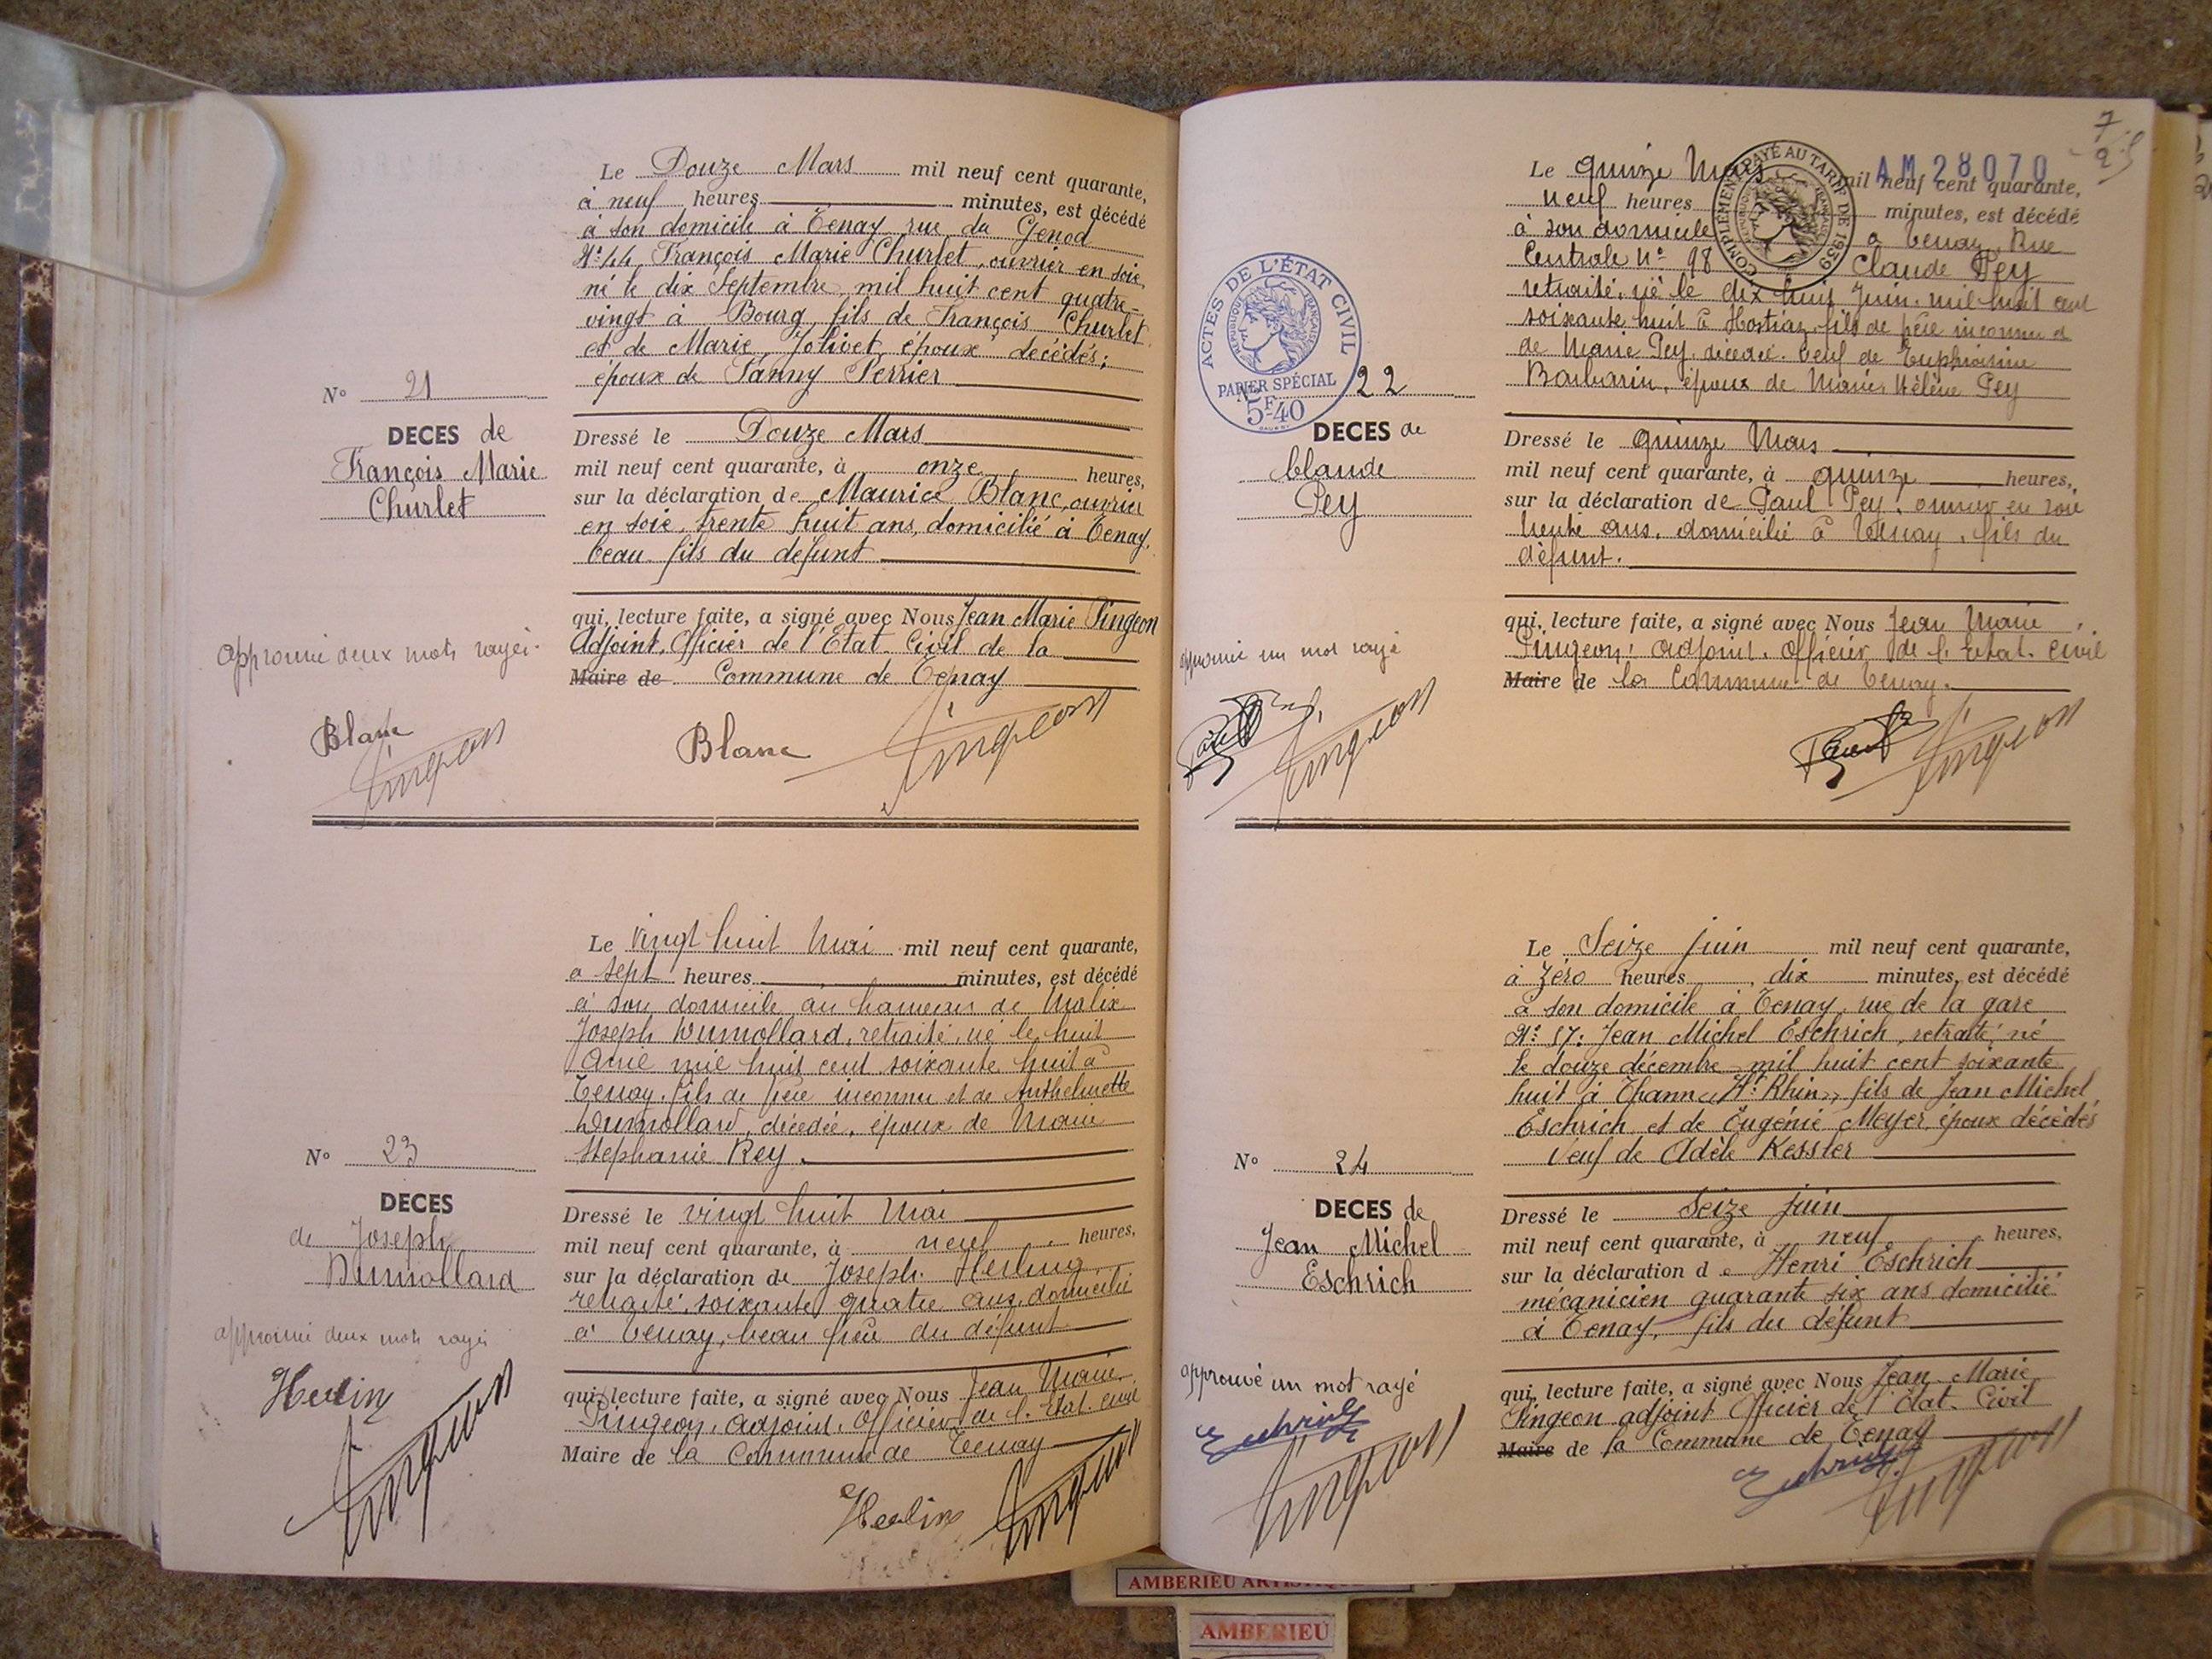 Le Douze Mars mil neuf cent quarante,
à neuf heures minutes, est décédé
à son domicile à Tenay rue du Genod
N° 44, François Marie Churlet, ouvrier en soie,
né le dix Septembre mil huit cent quatre-
vingt à Bourg, fils de François Churlet
et de Marie Jolivet, époux décédés;
époux de Fanny Perrier
N° 21
DECES de
François Marie
Churlet
Dressé le Douze Mars
mil neuf cent quarante, à onze heures,
sur la déclaration de Maurice Blanc, ouvrier
en soie, trente huit ans, domicilié à Tenay,
beau-fils du défunt
qui, lecture faite, a signé avec Nous Jean Marie Pingeon
Adjoint, Officier de l'Etat-Civil de la
Maire de Commune de Tenay
approuvé deux mots rayés.
Blanc Pingeon
Blanc Pingeon
Le vingt huit Mai mil neuf cent quarante,
à sept heures minutes, est décédé
à son domicile au hameau de Malix
Joseph Dumollard, retraité, né le huit
Avril mil huit cent soixante huit à
Tenay, fils de père inconnu et de Anthelmette
Dumollard, décédée, époux de Marie
Stéphanie Rey.
N° 23
DECES
de Joseph
Dumollard
Dressé le vingt huit Mai
mil neuf cent quarante, à neuf heures,
sur la déclaration de Joseph
retraité, soixante quatre ans, domicilié
à Tenay, beau frère du défunt
qui, lecture faite, a signé avec Nous Jean Marie
Pingeon, adjoint, Officier de l'Etat-Civil
Maire de la Commune de Tenay
approuvé deux mots rayés
Pingeon
Pingeon
7
AM 28070
COMPLEMENT PAYÉ AU TARIF DE 1939
Le quinze Mars mil neuf cent quarante,
neuf heures minutes, est décédé
à son domicile à Tenay, Rue
Centrale N° 98 Claude Pey
retraité, né le dix huit Juin mil huit cent
soixante huit à Hostiaz, fils de père inconnu et
de Marie Pey, décédée. Veuf de Euphrosine
époux de Marie Hélène Pey
ACTES DE L'ÉTAT CIVIL
RÉPUBLIQUE FRANÇAISE
PAPIER SPÉCIAL
5F.40
N° 22
DECES de
Claude
Pey
Dressé le quinze Mars
mil neuf cent quarante, à quinze heures,
sur la déclaration de Paul Pey, ouvrier en soie
trente ans, domicilié à Tenay, fils du
défunt.
qui, lecture faite, a signé avec Nous Jean Marie
Pingeon, adjoint, Officier de l'Etat-Civil
Maire de la Commune de Tenay.
approuvé un mot rayé
Pingeon
Pingeon
Le Seize juin mil neuf cent quarante,
à zéro heures, dix minutes, est décédé
à son domicile à Tenay, rue de la gare
N° 57: Jean Michel Eschrich, retraité, né
le douze décembre mil huit cent soixante
huit à Thann "Ht Rhin", fils de Jean Michel
Eschrich et de Eugénie Meyer, époux décédés
Veuf de Adèle Kessler
N° 24
DECES de
Jean Michel
Eschrich
Dressé le Seize juin
mil neuf cent quarante, à neuf heures,
sur la déclaration de Henri Eschrich
mécanicien quarante six ans domicilié
à Tenay, fils du défunt
qui, lecture faite, a signé avec Nous Jean Marie
Pingeon adjoint Officier de l'Etat-Civil
Maire de la Commune de Tenay
approuvé un mot rayé
Eschrich Pingeon
Eschrich Pingeon
AMBERIEU
AMBERIEU